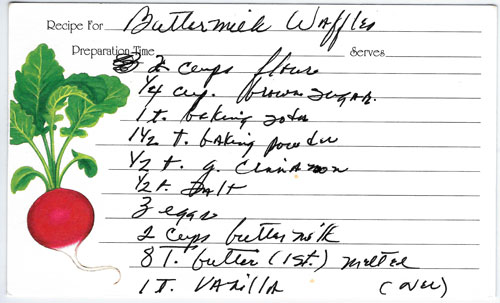 Recipe For Buttermilk Waffles
Preparation Time Serves
2 cups flour
1/4 cup. brown sugar.
1 t. baking soda
1 1/2 t. baking powder
1/2 t. g. Cinnamon
1/2 t. salt
3 eggs
2 cups buttermilk
8 T. butter (1st.) melted
1 T. Vanilla